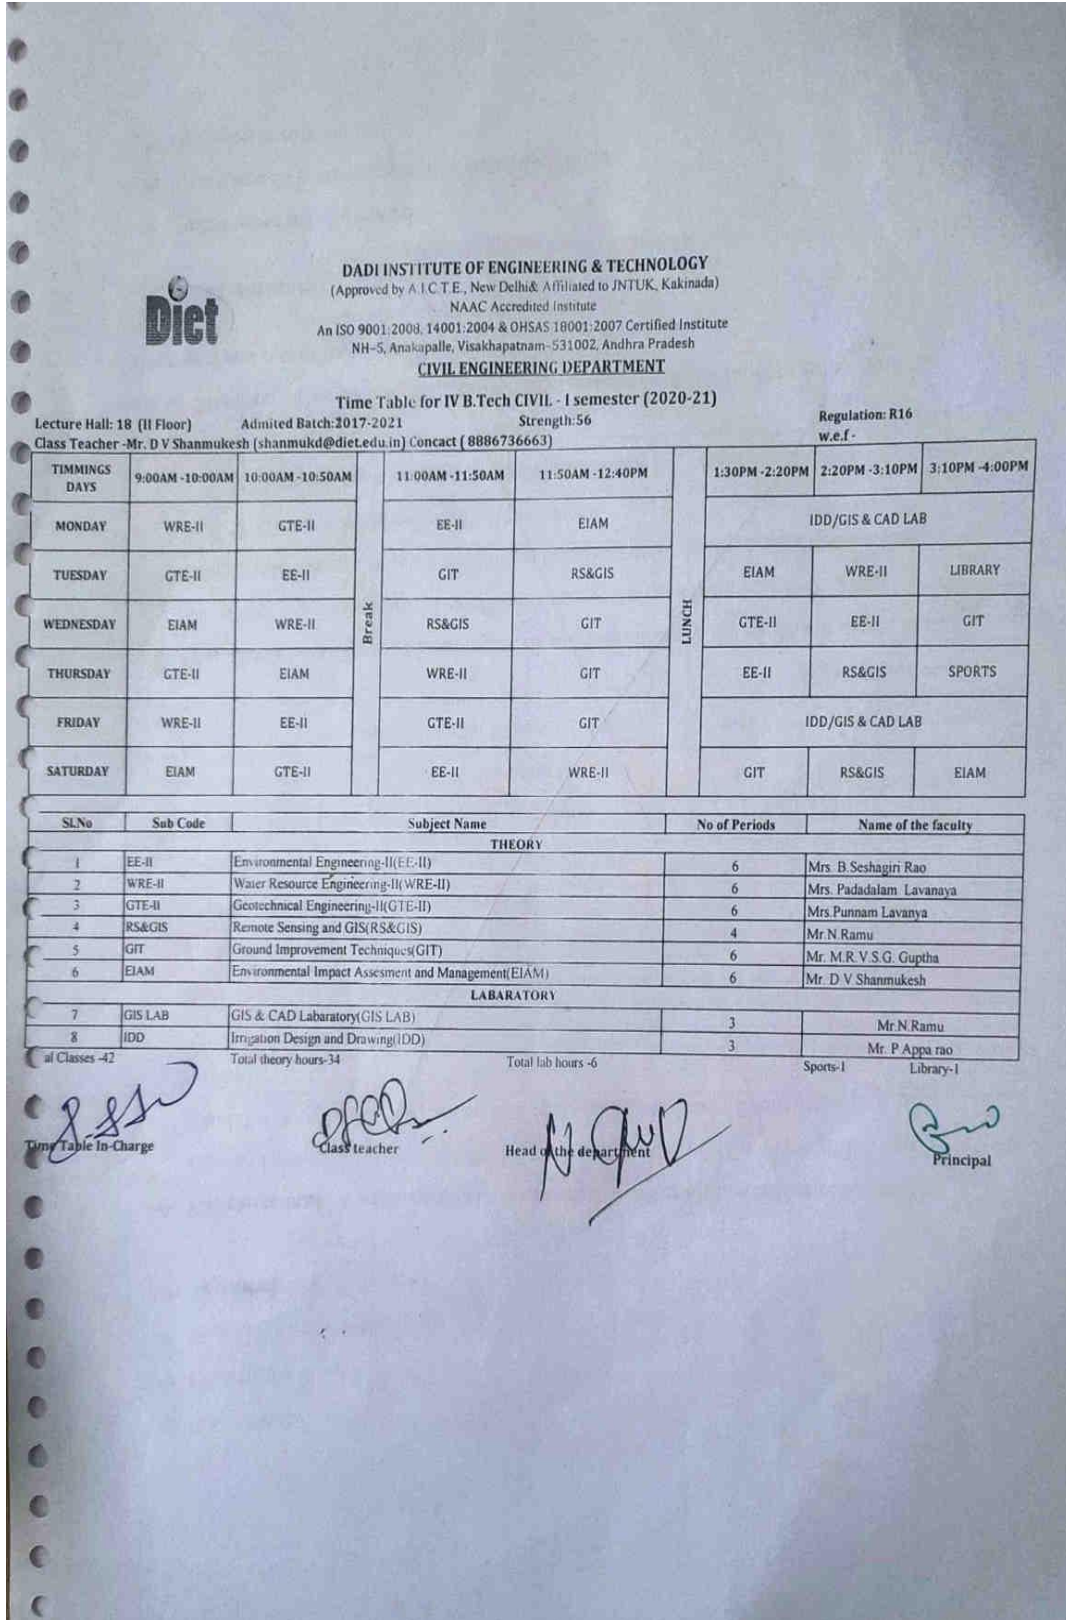 Diet
DADI INSTITUTE OF ENGINEERING & TECHNOLOGY
(Approved by A.I.C.T.E., New Delhi& Affiliated to JNTUK, Kakinada)
NAAC Accredited Institute
An ISO 9001:2008, 14001:2004 & OHSAS 18001:2007 Certified Institute
NH-5, Anakapalle, Visakhapatnam-531002, Andhra Pradesh
CIVIL ENGINEERING DEPARTMENT
Time Table for IV B.Tech CIVIL - I semester (2020-21)
Lecture Hall: 18 (II Floor) Admited Batch:2017-2021 Strength:56 Regulation: R16
Class Teacher -Mr. D V Shanmukesh (shanmukd@diet.edu.in) Concact ( 8886736663) w.e.f -
TIMMINGS DAYS 9:00AM -10:00AM 10:00AM -10:50AM Break 11:00AM -11:50AM 11:50AM -12:40PM LUNCH 1:30PM -2:20PM 2:20PM -3:10PM 3:10PM -4:00PM
MONDAY WRE-II GTE-II EE-II EIAM IDD/GIS & CAD LAB
TUESDAY GTE-II EE-II GIT RS&GIS EIAM WRE-II LIBRARY
WEDNESDAY EIAM WRE-II RS&GIS GIT GTE-II EE-II GIT
THURSDAY GTE-II EIAM WRE-II GIT EE-II RS&GIS SPORTS
FRIDAY WRE-II EE-II GTE-II GIT IDD/GIS & CAD LAB
SATURDAY EIAM GTE-II EE-II WRE-II GIT RS&GIS EIAM
Sl.No Sub Code Subject Name No of Periods Name of the faculty
THEORY
1 EE-II Environmental Engineering-II(EE-II) 6 Mrs. B.Seshagiri Rao
2 WRE-II Water Resource Engineering-II(WRE-II) 6 Mrs. Padadalam Lavanaya
3 GTE-II Geotechnical Engineering-II(GTE-II) 6 Mrs.Punnam Lavanya
4 RS&GIS Remote Sensing and GIS(RS&GIS) 4 Mr.N.Ramu
5 GIT Ground Improvement Techniques(GIT) 6 Mr. M.R.V.S.G. Guptha
6 EIAM Environmental Impact Assesment and Management(EIAM) 6 Mr. D V Shanmukesh
LABARATORY
7 GIS LAB GIS & CAD Labaratory(GIS LAB) 3 Mr.N.Ramu
8 IDD Irrigation Design and Drawing(IDD) 3 Mr. P.Appa rao
al Classes -42 Total theory hours-34 Total lab hours -6 Sports-1 Library-1
Time Table In-Charge Class teacher Head of the department Principal